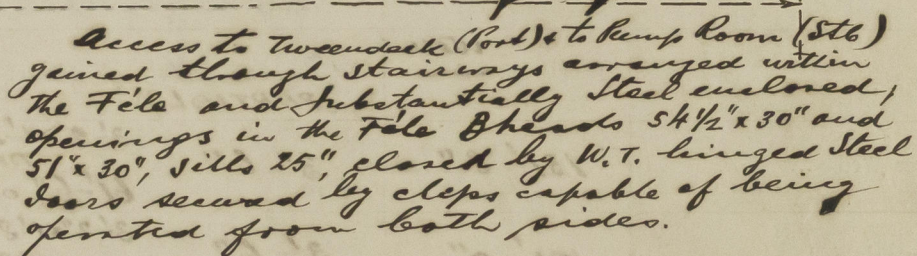 Access to Tweendeck (Port) & to Pump Room (Stb)
gained through stairways arranged within
the F'cle and substantially Steel enclosed,
openings in the F'cle Bheads 54½" x 30" and
51" x 30", Sills 25", closed by W.T. hinged Steel
doors secured by clips capable of being
operated from both sides.